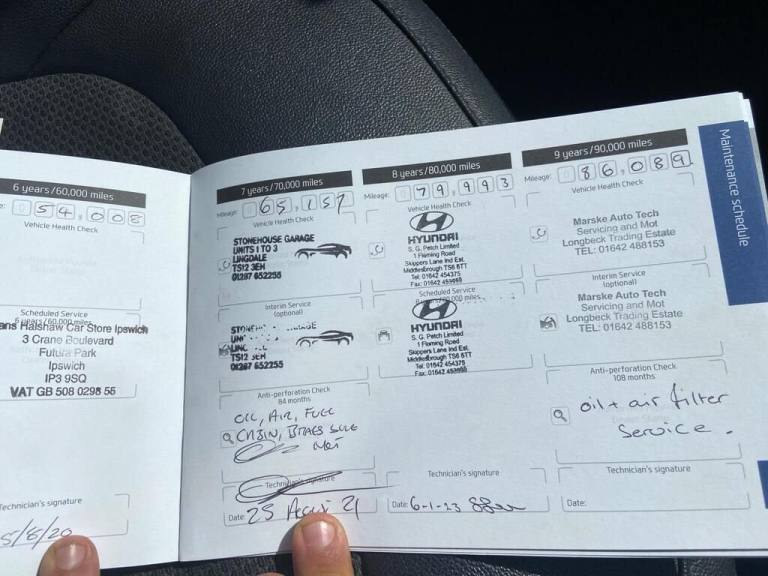 6 years/60,000 miles
54,008
Vehicle Health Check
Scheduled Service
6 years/60,000 miles
Halshaw Car Store Ipswich
3 Crane Boulevard
Futura Park
Ipswich
IP3 9SQ
VAT GB 508 0298 55
Technician's signature
5/8/20
7 years/70,000 miles
Mileage: 065,157
Vehicle Health Check
STONEHOUSE GARAGE
UNITS 1 TO 3
LINGDALE
TS12 3EH
01287 652255
Interim Service
(optional)
TS12 3EH
01287 652255
Anti-perforation Check
84 months
OIL, AIR, FUEL
CABIN,
MOT
Technician's signature
Date: 25 21
8 years/80,000 miles
Mileage: 079,993
Vehicle Health Check
HYUNDAI
S. G. Petch Limited
1 Fleming Road
Skippers Lane Ind Est.
Middlesbrough TS6 6TT
Tel: 01642 454375
Fax: 01642
Scheduled Service
HYUNDAI
S. G. Petch Limited
1 Fleming Road
Skippers Lane Ind Est.
Middlesbrough TS6 6TT
Tel: 01642 454375
Fax: 01642
Technician's signature
Date: 6-1-23
9 years/90,000 miles
Mileage: 086,089
Vehicle Health Check
Marske Auto Tech
Servicing and Mot
Longbeck Trading Estate
TEL: 01642 488153
Interim Service
(optional)
Marske Auto Tech
Servicing and Mot
Longbeck Trading Estate
TEL: 01642 488153
Anti-perforation Check
108 months
oil + air filter
Service.
Technician's signature
Date:
Maintenance schedule